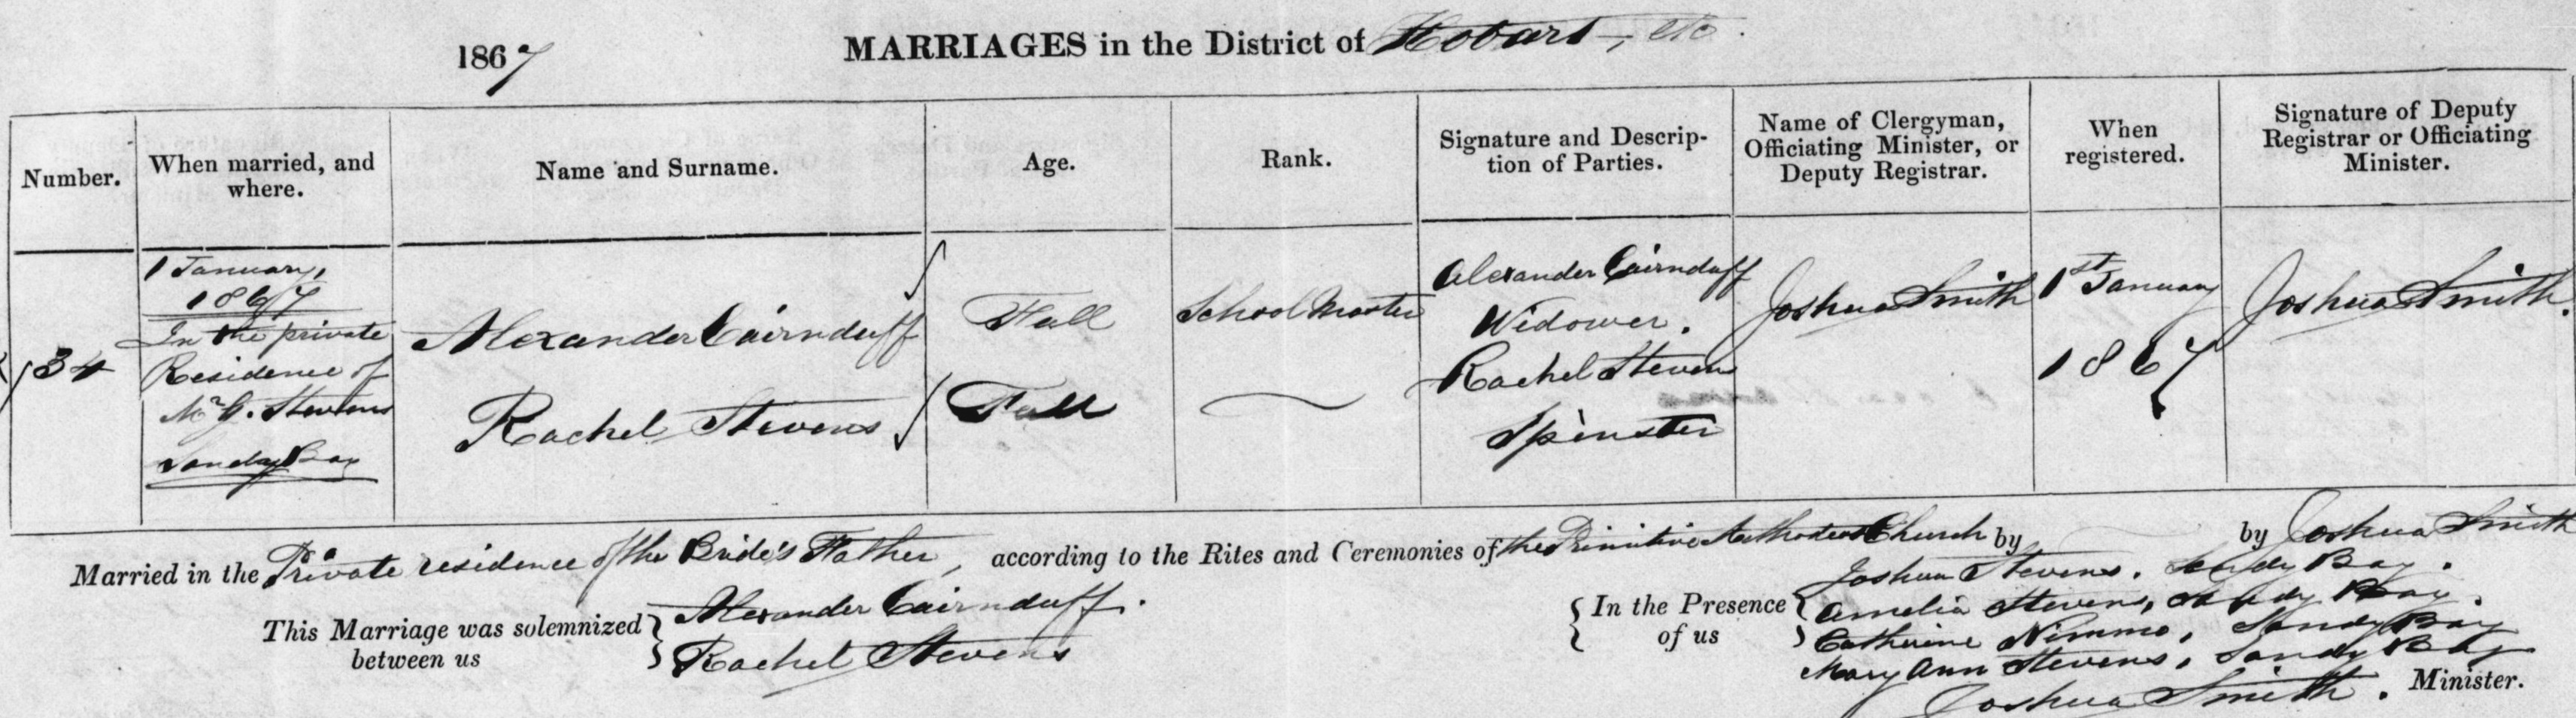 1867 MARRIAGES in the District of Hobart, etc.
Number.
When married, and
where.
Name and Surname.
Age.
Rank.
Signature and Descrip-
tion of Parties.
Name of Clergyman,
Officiating Minister, or
Deputy Registrar.
When
registered.
Signature of Deputy
Registrar or Officiating
Minister.
134
1 January,
1867
In the private
Residence of
Mr G. Stevens
Sandy Bay
Alexander Cairnduff
Rachel Stevens
Full
Full
School Master
Alexander Cairnduff
Widower.
Rachel Stevens
Spinster
Joshua Smith
1st January
1867
Joshua Smith.
Married in the Private residence of the Bride's Father, according to the Rites and Ceremonies of the Primitive Methodist Church by by Joshua Smith
This Marriage was solemnized
between us
Alexander Cairnduff.
Rachel Stevens
In the Presence
of us
Joshua Stevens. Sandy Bay.
Amelia Stevens, Sandy Bay.
Catherine Nimmo, Sandy Bay
Mary Ann Stevens, Sandy Bay
Joshua Smith. Minister.